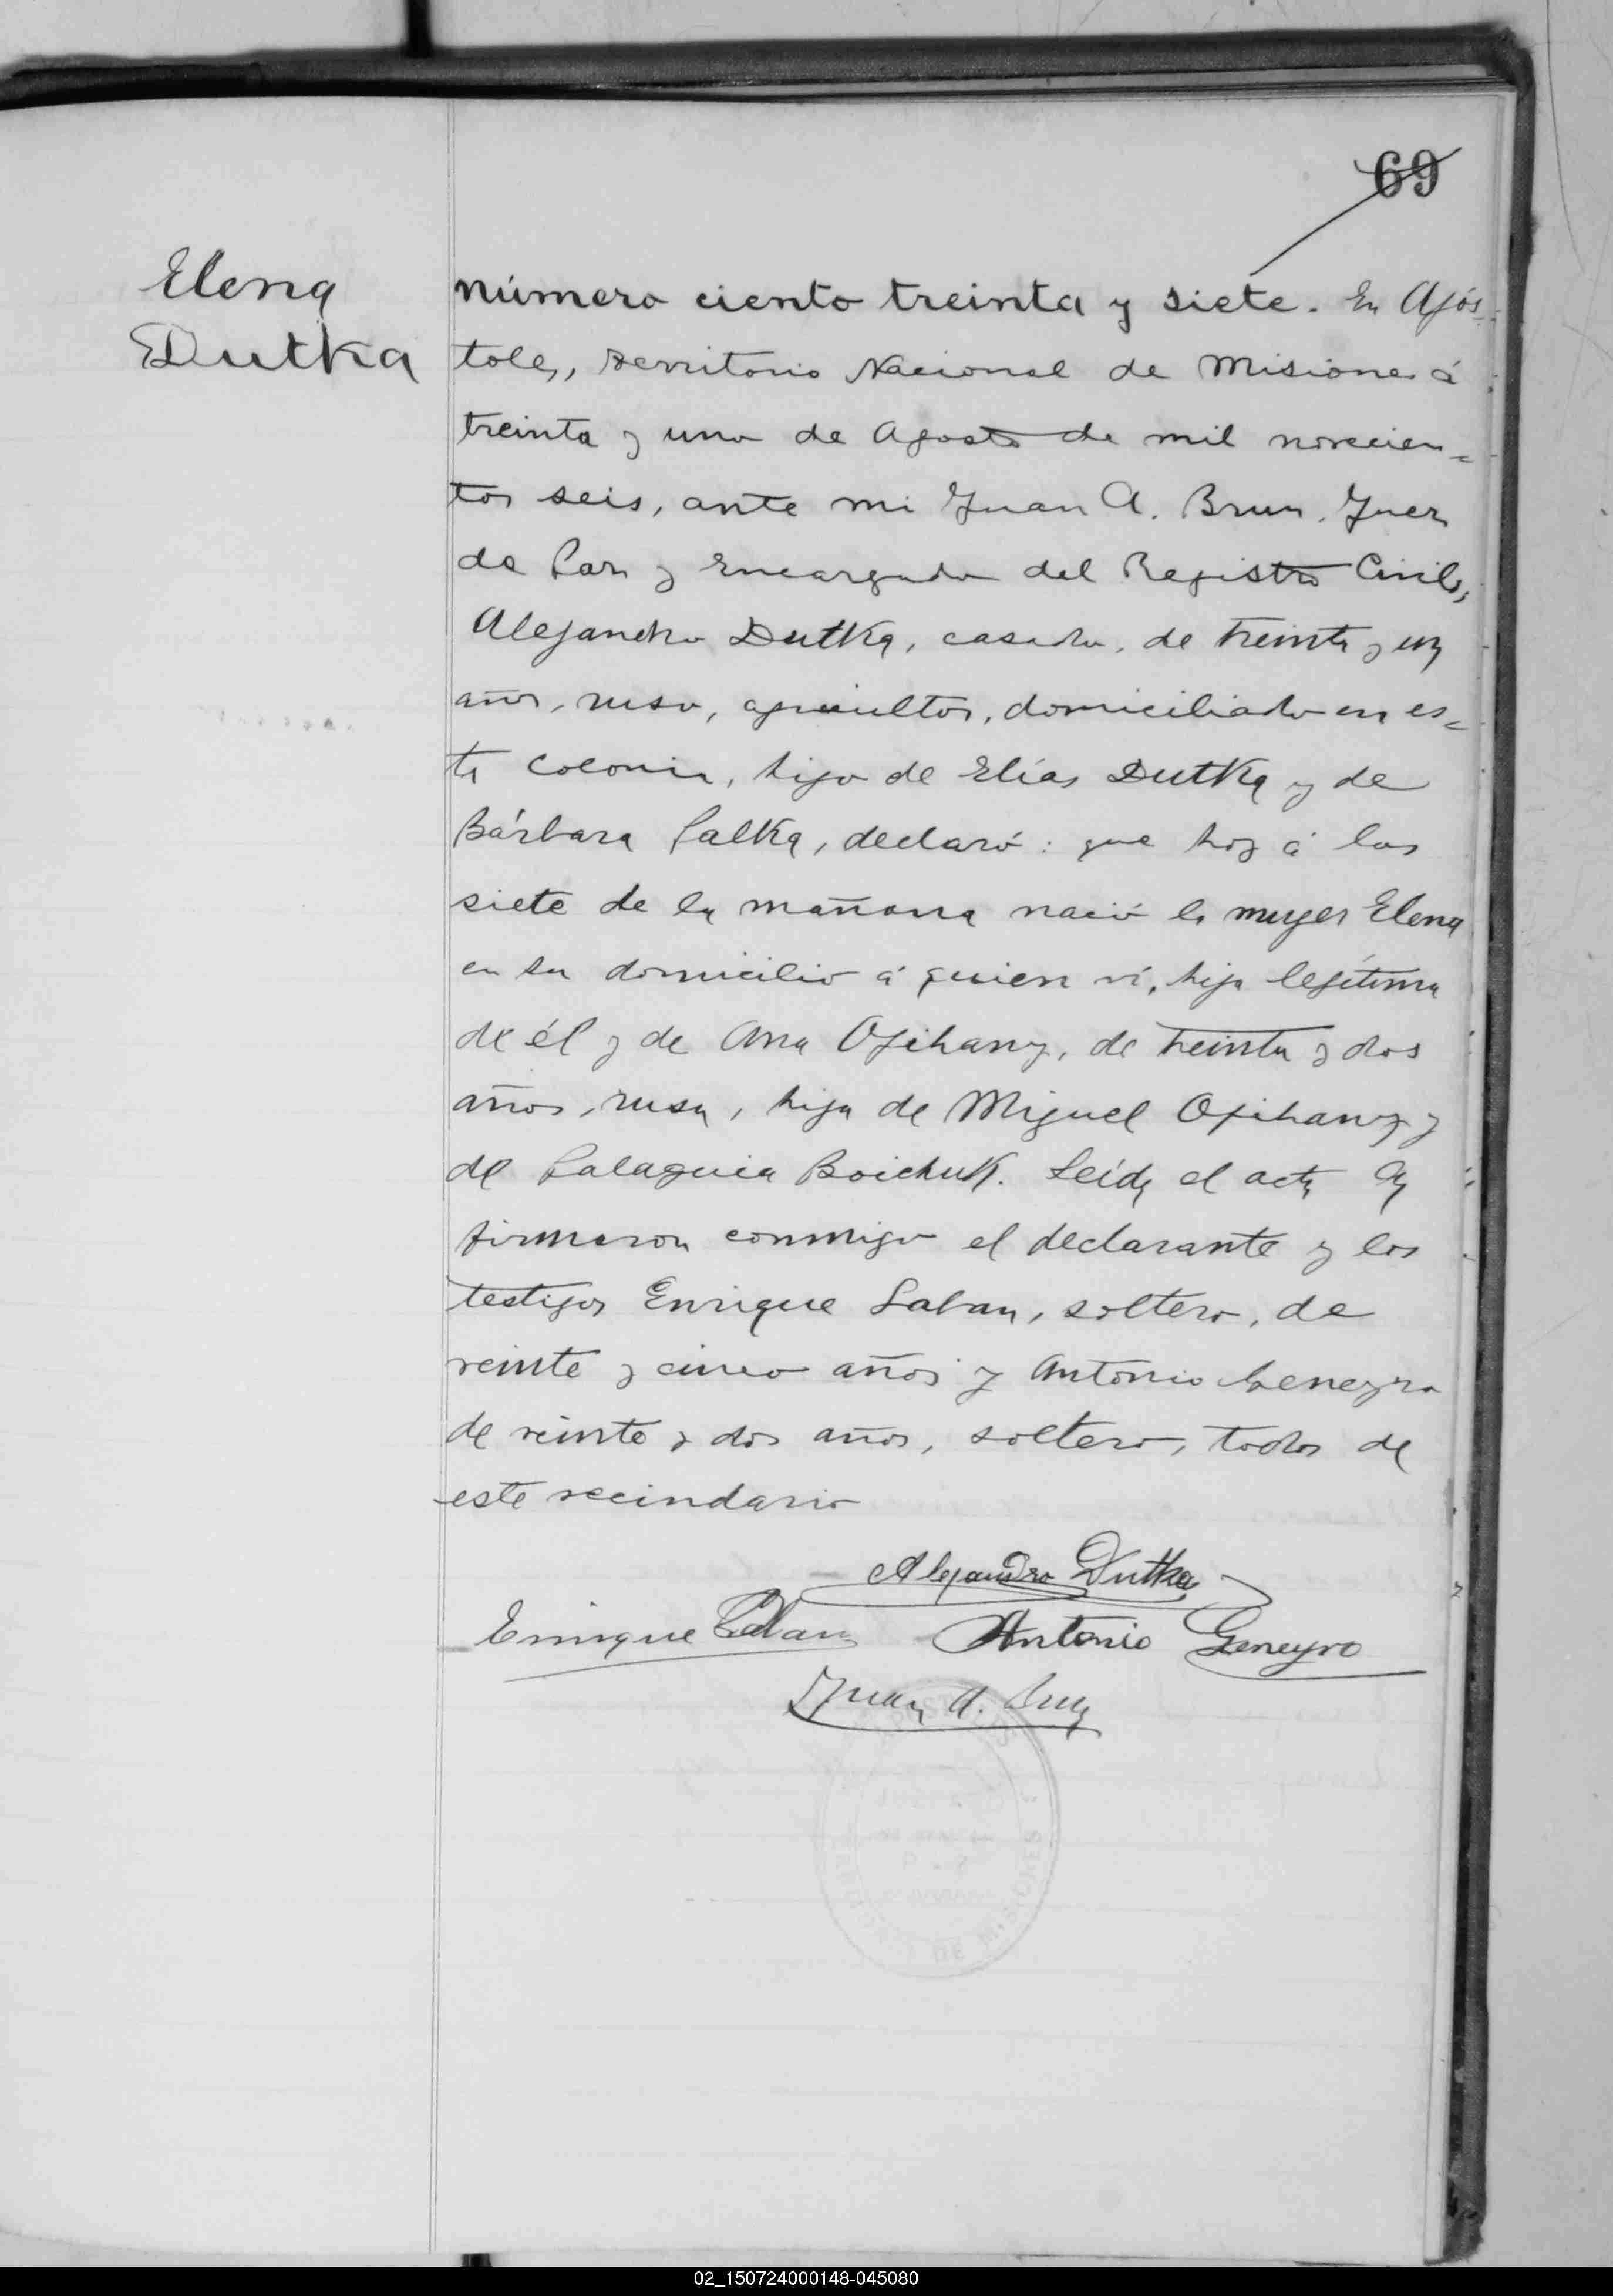 69
Elena
Dutka
Número ciento treinta y siete. En Após-
toles, Territorio Nacional de Misiones á
treinta y uno de Agosto de mil novecien-
tos seis, ante mi Juan A. Brun, Juez
de Paz y Encargado del Registro Civil,
Alejandro Dutka, casado, de treinta y un
años, ruso, agricultor, domiciliado en es-
ta colonia, hijo de Elías Dutka y de
Bárbara Palka, declaró: que hoy á las
siete de la mañana nació la mujer Elena
en su domicilio á quien ví, hija legítima
de él y de Ana Opihany, de treinta y dos
años, rusa, hija de Miguel Opihany y
de Palaguia Boichuk. Leída el acta la
firmaron conmigo el declarante y los
testigos Enrique Laban, soltero, de
veinte y cinco años y Antonio Geneyro
de veinte y dos años, soltero, todos de
este vecindario
Alejandro Dutka
Enrique Antonio Geneyro
Juan A. Brun
DE MISIONES
02_150724000148-045080